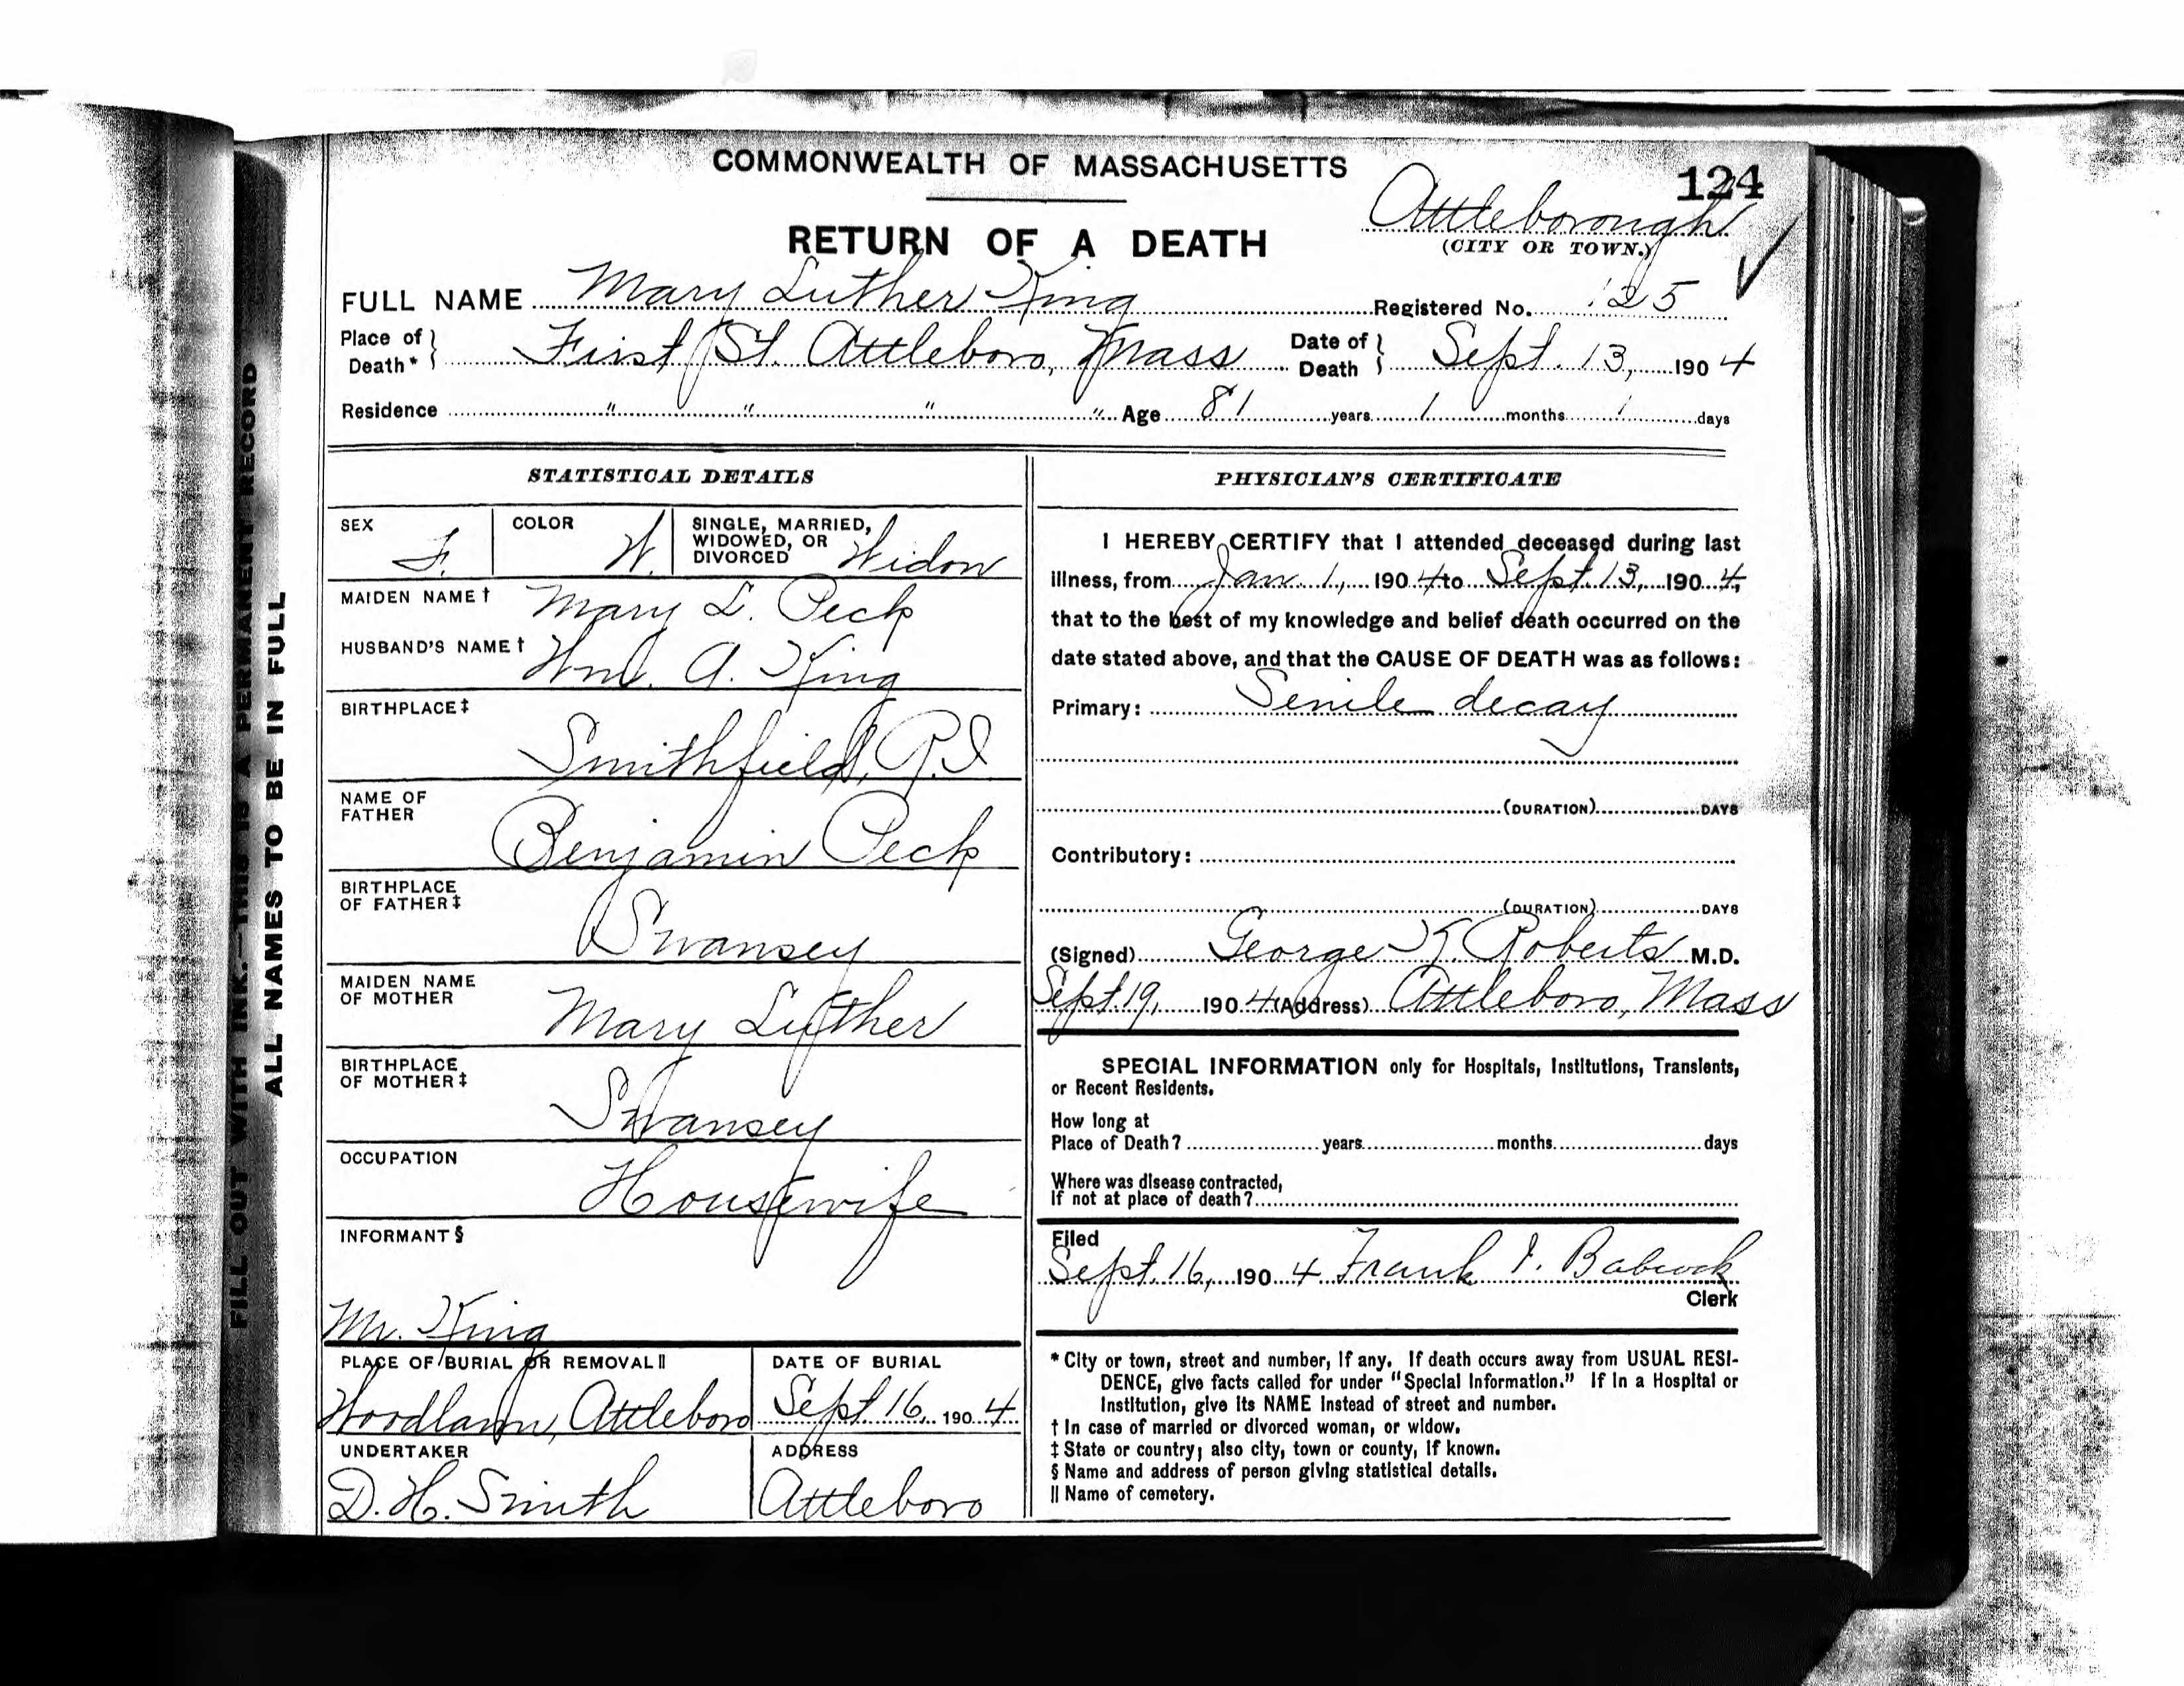 COMMONWEALTH OF MASSACHUSETTS
124
Attleborough
(CITY OR TOWN.)
RETURN OF A DEATH
FULL NAME Mary Luther King Registered No. 125
Place of Death* First St. Attleboro, Mass Date of Death Sept. 13, 1904
Residence " " " " Age 81 years 1 months 1 days
STATISTICAL DETAILS
SEX F. COLOR W. SINGLE, MARRIED, WIDOWED, OR DIVORCED Widow
MAIDEN NAME† Mary L. Peck
HUSBAND'S NAME† Wm. A. King
BIRTHPLACE‡
Smithfield, R.I
NAME OF FATHER
Benjamin Peck
BIRTHPLACE OF FATHER‡
Swansey
MAIDEN NAME OF MOTHER
Mary Luther
BIRTHPLACE OF MOTHER‡
Swansey
OCCUPATION
Housewife
INFORMANT§
Mr. King
PLACE OF BURIAL OR REMOVAL||
Woodlawn, Attleboro
DATE OF BURIAL
Sept. 16, 1904
UNDERTAKER
D. H. Smith
ADDRESS
Attleboro
PHYSICIAN'S CERTIFICATE
I HEREBY CERTIFY that I attended deceased during last
illness, from Jan. 1, 1904 to Sept. 13, 1904,
that to the best of my knowledge and belief death occurred on the
date stated above, and that the CAUSE OF DEATH was as follows:
Primary: Senile decay
(DURATION) DAYS
Contributory:
(DURATION) DAYS
(Signed) George K. Roberts M.D.
Sept. 19, 1904 (Address) Attleboro, Mass
SPECIAL INFORMATION only for Hospitals, Institutions, Transients,
or Recent Residents.
How long at
Place of Death? years months days
Where was disease contracted,
If not at place of death?
Filed
Sept. 16, 1904 Frank I. Babcock
Clerk
* City or town, street and number, if any. If death occurs away from USUAL RESI-
DENCE, give facts called for under "Special Information." If in a Hospital or
Institution, give its NAME instead of street and number.
† In case of married or divorced woman, or widow.
‡ State or country; also city, town or county, if known.
§ Name and address of person giving statistical details.
|| Name of cemetery.
FILL OUT WITH INK.—THIS IS A PERMANENT RECORD
ALL NAMES TO BE IN FULL